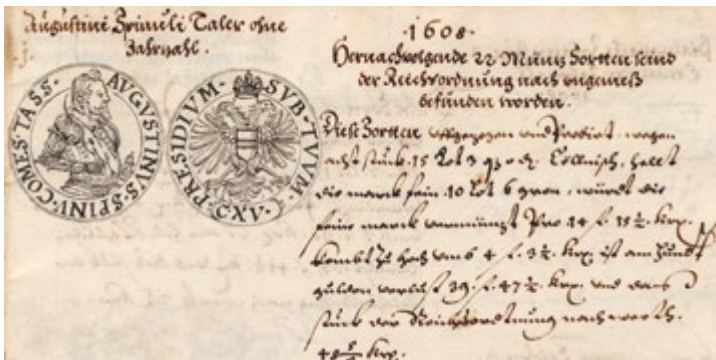 Augustini Spinuli Taler ohne
Jahrzahl.
AVGUSTINUS·SPINV·COMES·TASS·
SVB·TVUM·PRESIDIVM·
CXV
·1608·
Hernachvolgende 22 Müntz Sortten seind
der Reichsordnung nach ungemeß
befunden worden.
Diese Sortten uffgezogen und Probirt, wegen
acht stuck 15 Lot 3 q. o d. Cöllnisch, helt
die marck fein 10 Lot 6 gren, würdt die
feine marck vermüntzt Pro 14 f. 15 ½ krx.
kombt Zu hoch umb 4 f. 3 ½ krx ist am hundt
gulden verlust 39 f. 47 ½ krx. und das
stuck der Reichsordnung nach werth.
48 krx.